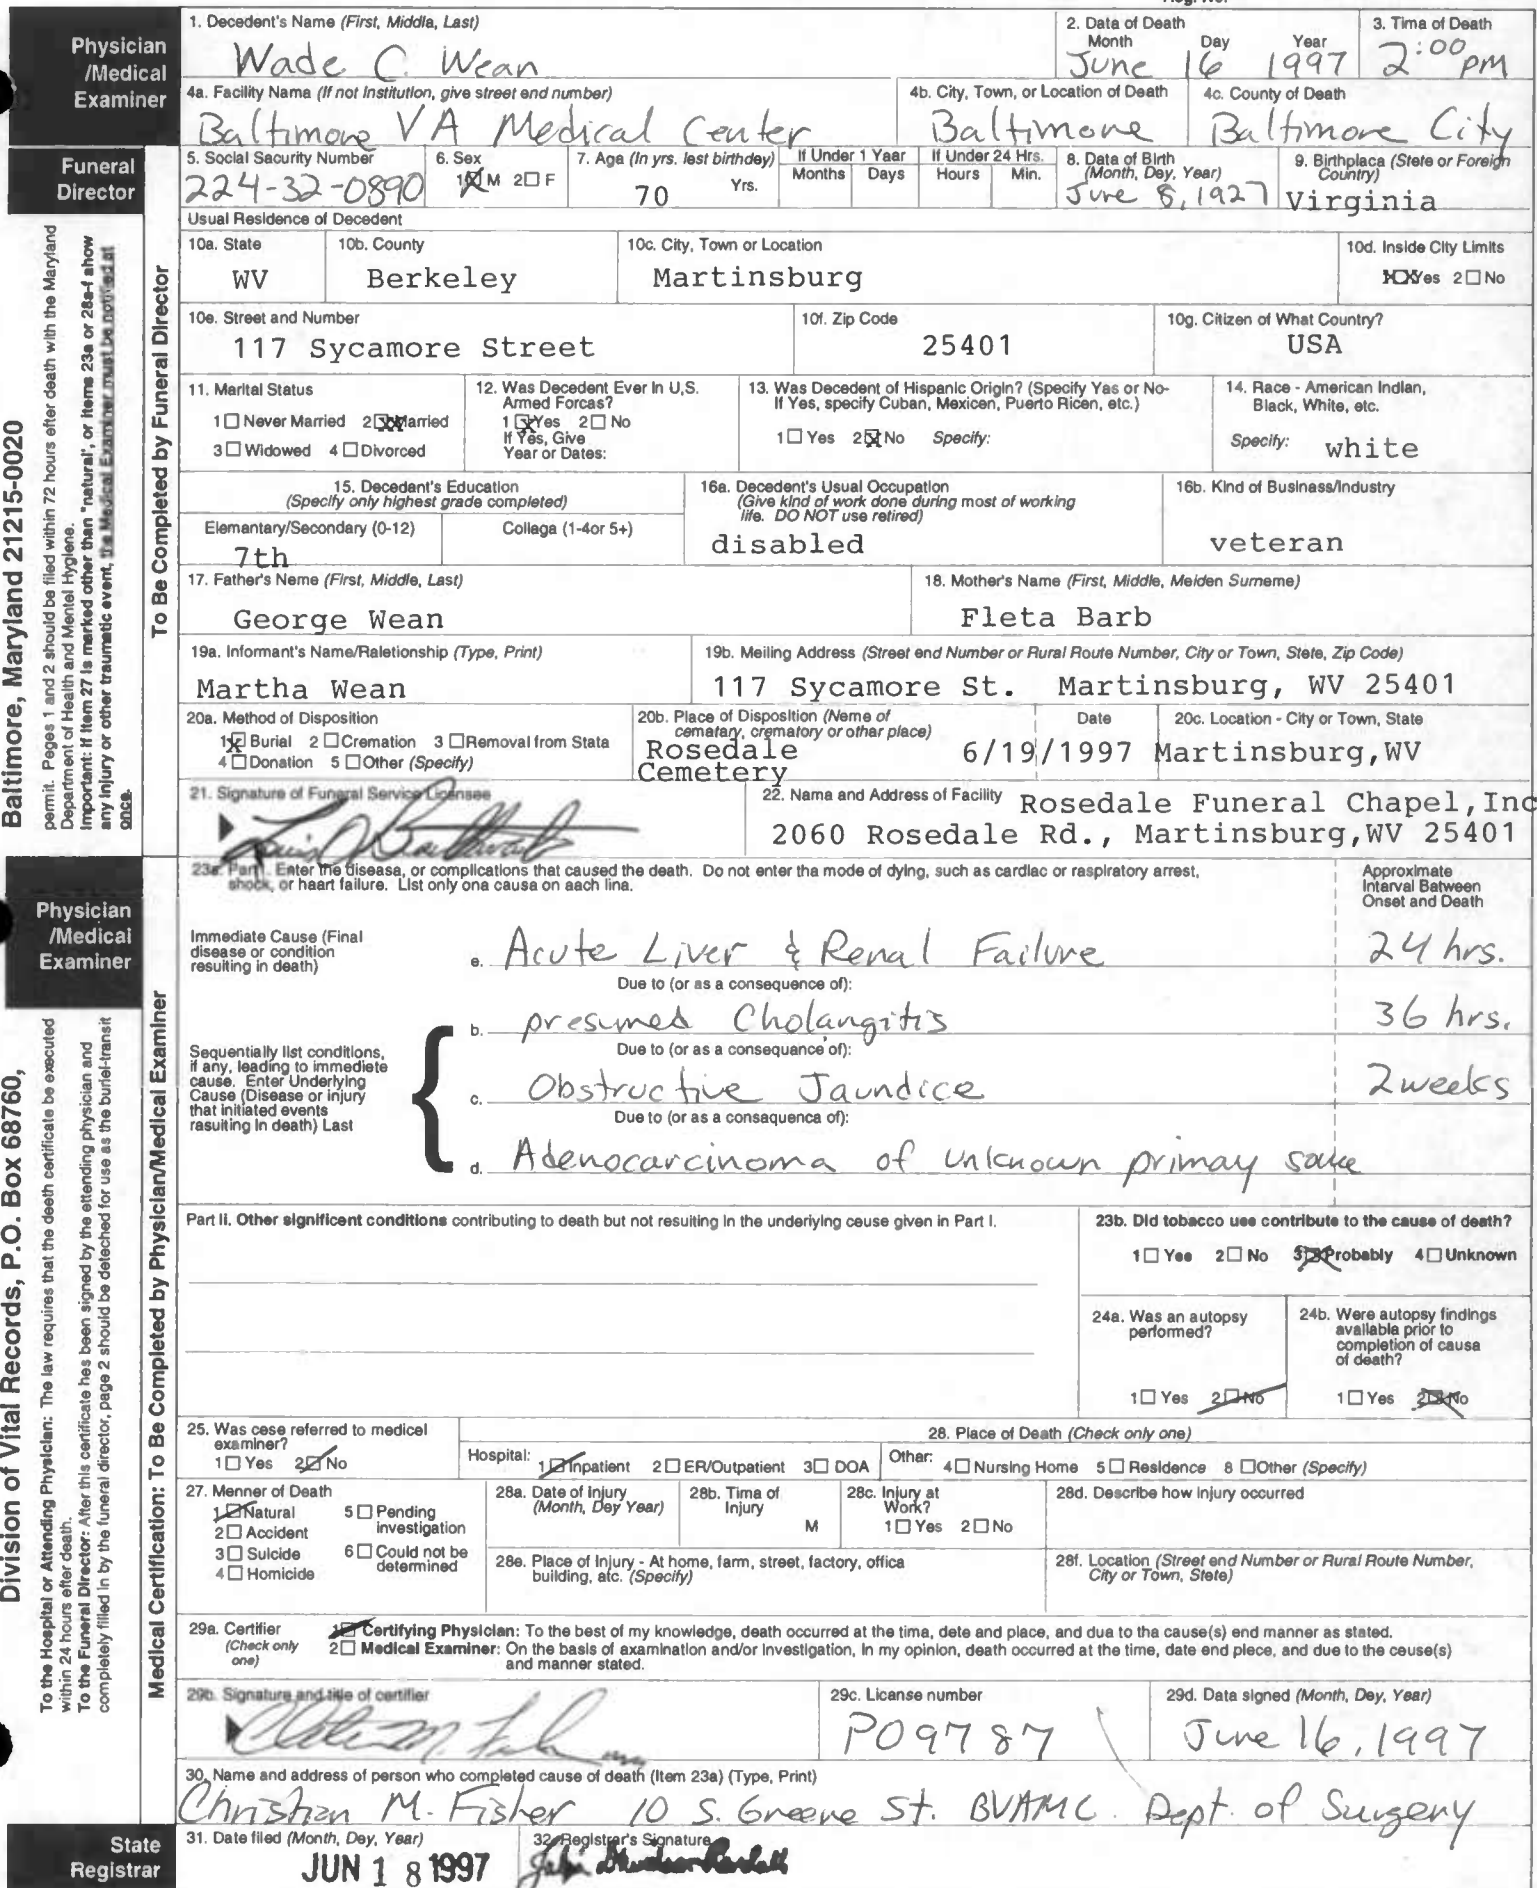 Physician /Medical Examiner
1. Decedent's Name (First, Middle, Last)
Wade C. Wean
2. Data of Death
Month Day Year
June 16 1997
3. Tima of Death
2:00 pm
4a. Facility Name (If not Institution, give street end number)
Baltimore VA Medical Center
4b. City, Town, or Location of Death
Baltimore
4c. County of Death
Baltimore City
Funeral Director
5. Social Sacurity Number
224-32-0890
6. Sex
1 M 2 F
7. Age (In yrs. lest birthdey)
70 Yrs.
If Under 1 Year
Months Days
If Under 24 Hrs.
Hours Min.
8. Data of Birth (Month, Dey, Year)
June 8, 1927
9. Birthplaca (Stete or Foreign Country)
Virginia
Usual Residence of Decedent
10a. State
WV
10b. County
Berkeley
10c. City, Town or Location
Martinsburg
10d. Inside City Limits
Yes 2 No
10e. Street and Number
117 Sycamore Street
10f. Zip Code
25401
10g. Citizen of What Country?
USA
11. Marital Status
1 Never Married 2 Married
3 Widowed 4 Divorced
12. Was Decedent Ever In U,S. Armed Forcas?
1 Yes 2 No
If Yes, Give
Year or Dates:
13. Was Decedent of Hispanic Origin? (Specify Yas or No-
If Yes, specify Cuban, Mexicen, Puerto Ricen, etc.)
1 Yes 2 No Specify:
14. Race - American Indlan, Black, White, etc.
Specify: white
15. Decedant's Education
(Specify only highest grade completed)
Elemantary/Secondary (0-12)
7th
Collega (1-4or 5+)
16a. Decedent's Usual Occupation
(Give kind of work done during most of working
life. DO NOT use retired)
disabled
16b. Kind of Businass/Industry
veteran
17. Father's Neme (First, Middle, Last)
George Wean
18. Mother's Name (First, Middle, Meiden Surneme)
Fleta Barb
19a. Informant's Name/Raletionship (Type, Print)
Martha Wean
19b. Meiling Address (Street end Number or Rural Route Number, City or Town, Stete, Zip Code)
117 Sycamore St. Martinsburg, WV 25401
20a. Method of Disposition
1 Burial 2 Cremation 3 Removal from Stata
4 Donation 5 Other (Specify)
20b. Place of Disposition (Neme of
cematary, crematory or othar place)
Rosedale
Cemetery
Date
6/19/1997
20c. Location - City or Town, State
Martinsburg,WV
21. Signature of Funeral Service Licensee
22. Name and Address of Facility Rosedale Funeral Chapel,Inc
2060 Rosedale Rd., Martinsburg,WV 25401
To Be Completed by Funeral Director
Baltimore, Maryland 21215-0020
permit. Peges 1 and 2 should be filed within 72 hours efter death with the Maryland
Department of Health and Mentel Hyglene.
Important: If Item 27 is marked other than "natural", or Items 23a or 28a-f show
any Injury or other traumatic event, the Medical Examiner must be notified at
once.
Physician /Medical Examiner
23a. Part I. Enter the disease, or complications that caused the death. Do not enter tha mode of dying, such as cardiac or raspiratory arrest,
shock, or haart failure. List only ona causa on aach lina.
Approximate
Interval Between
Onset and Death
Immediate Cause (Final
disease or condition
resulting in death)
a. Acute Liver & Renal Failure 24 hrs.
Due to (or as a consequence of):
b. presumed Cholangitis 36 hrs.
Due to (or as a consequance of):
Sequentially list conditions,
if any, leading to immediete
cause. Enter Underlying
Cause (Disease or injury
that initiated events
rasulting in death) Last
c. Obstructive Jaundice 2 weeks
Due to (or as a consaquenca of):
d. Adenocarcinoma of unknown primay souce
Part II. Other significent conditions contributing to death but not resulting In the underlying ceuse given in Part I.
23b. Did tobacco use contribute to the cause of death?
1 Yes 2 No 3 Probably 4 Unknown
24a. Was an autopsy performed?
1 Yes 2 No
24b. Were autopsy findings
available prior to
completion of causa
of death?
1 Yes 2 No
25. Was cese referred to medicel examiner?
1 Yes 2 No
28. Place of Death (Check only one)
Hospital: 1 Inpatient 2 ER/Outpatient 3 DOA
Other: 4 Nursing Home 5 Residence 8 Other (Specify)
27. Menner of Death
1 Natural
2 Accident
3 Suicide
4 Homicide
5 Pending investigation
6 Could not be determined
28a. Date of Injury
(Month, Dey Year)
28b. Tima of Injury
M
28c. Injury at Work?
1 Yes 2 No
28d. Describe how injury occurred
28e. Place of Injury - At home, farm, street, factory, offica
building, atc. (Specify)
28f. Location (Street end Number or Rural Route Number,
City or Town, Stete)
29a. Certifier
(Check only one)
1 Certifying Physician: To the best of my knowledge, death occurred at the tima, dete and place, and dua to tha cause(s) end manner as stated.
2 Medical Examiner: On the basis of axamination and/or Investigation, In my opinion, death occurred at the time, date end plece, and due to the ceuse(s)
and manner stated.
29b. Signature and title of certifier
29c. License number
P09787
29d. Data signed (Month, Dey, Year)
June 16, 1997
30. Name and address of person who completed cause of death (Item 23a) (Type, Print)
Christian M. Fisher 10 S. Greene St. BVAMC Dept. of Surgery
Medical Certification: To Be Completed by Physician/Medical Examiner
Division of Vital Records, P.O. Box 68760,
To the Hospital or Attending Physician: The law requires that the deeth certificate be executed
within 24 hours efter death.
To the Funeral Director: After this certificate hes been signed by the ettending physician and
completely filled in by the funeral director, page 2 should be deteched for use as the buriel-transit
State Registrar
31. Date filed (Month, Dey, Year)
JUN 18 1997
32. Registrar's Signature